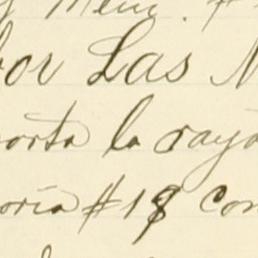 y Menu. #
bor Las N
porta la raya
oria #18 con